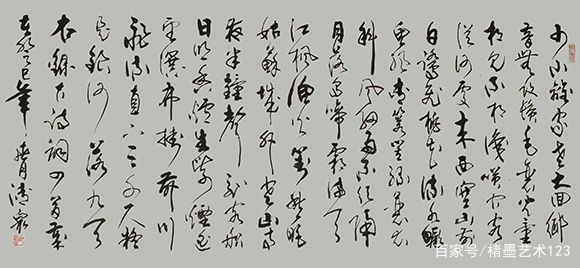 少小離家老大回鄉
音無改鬢毛衰兒童
相見不相識笑問客
從何處來西塞山前
白鷺飛桃花流水鱖
魚肥青箬笠綠蓑衣
斜風細雨不須歸
月落烏啼霜滿天
江楓漁火對愁眠
姑蘇城外寒山寺
夜半鐘聲到客船
日照香爐生紫煙遙
看瀑布掛前川
飛流直下三千尺疑
是銀河落九天
古詩詞四首
百家号/楮墨艺术123